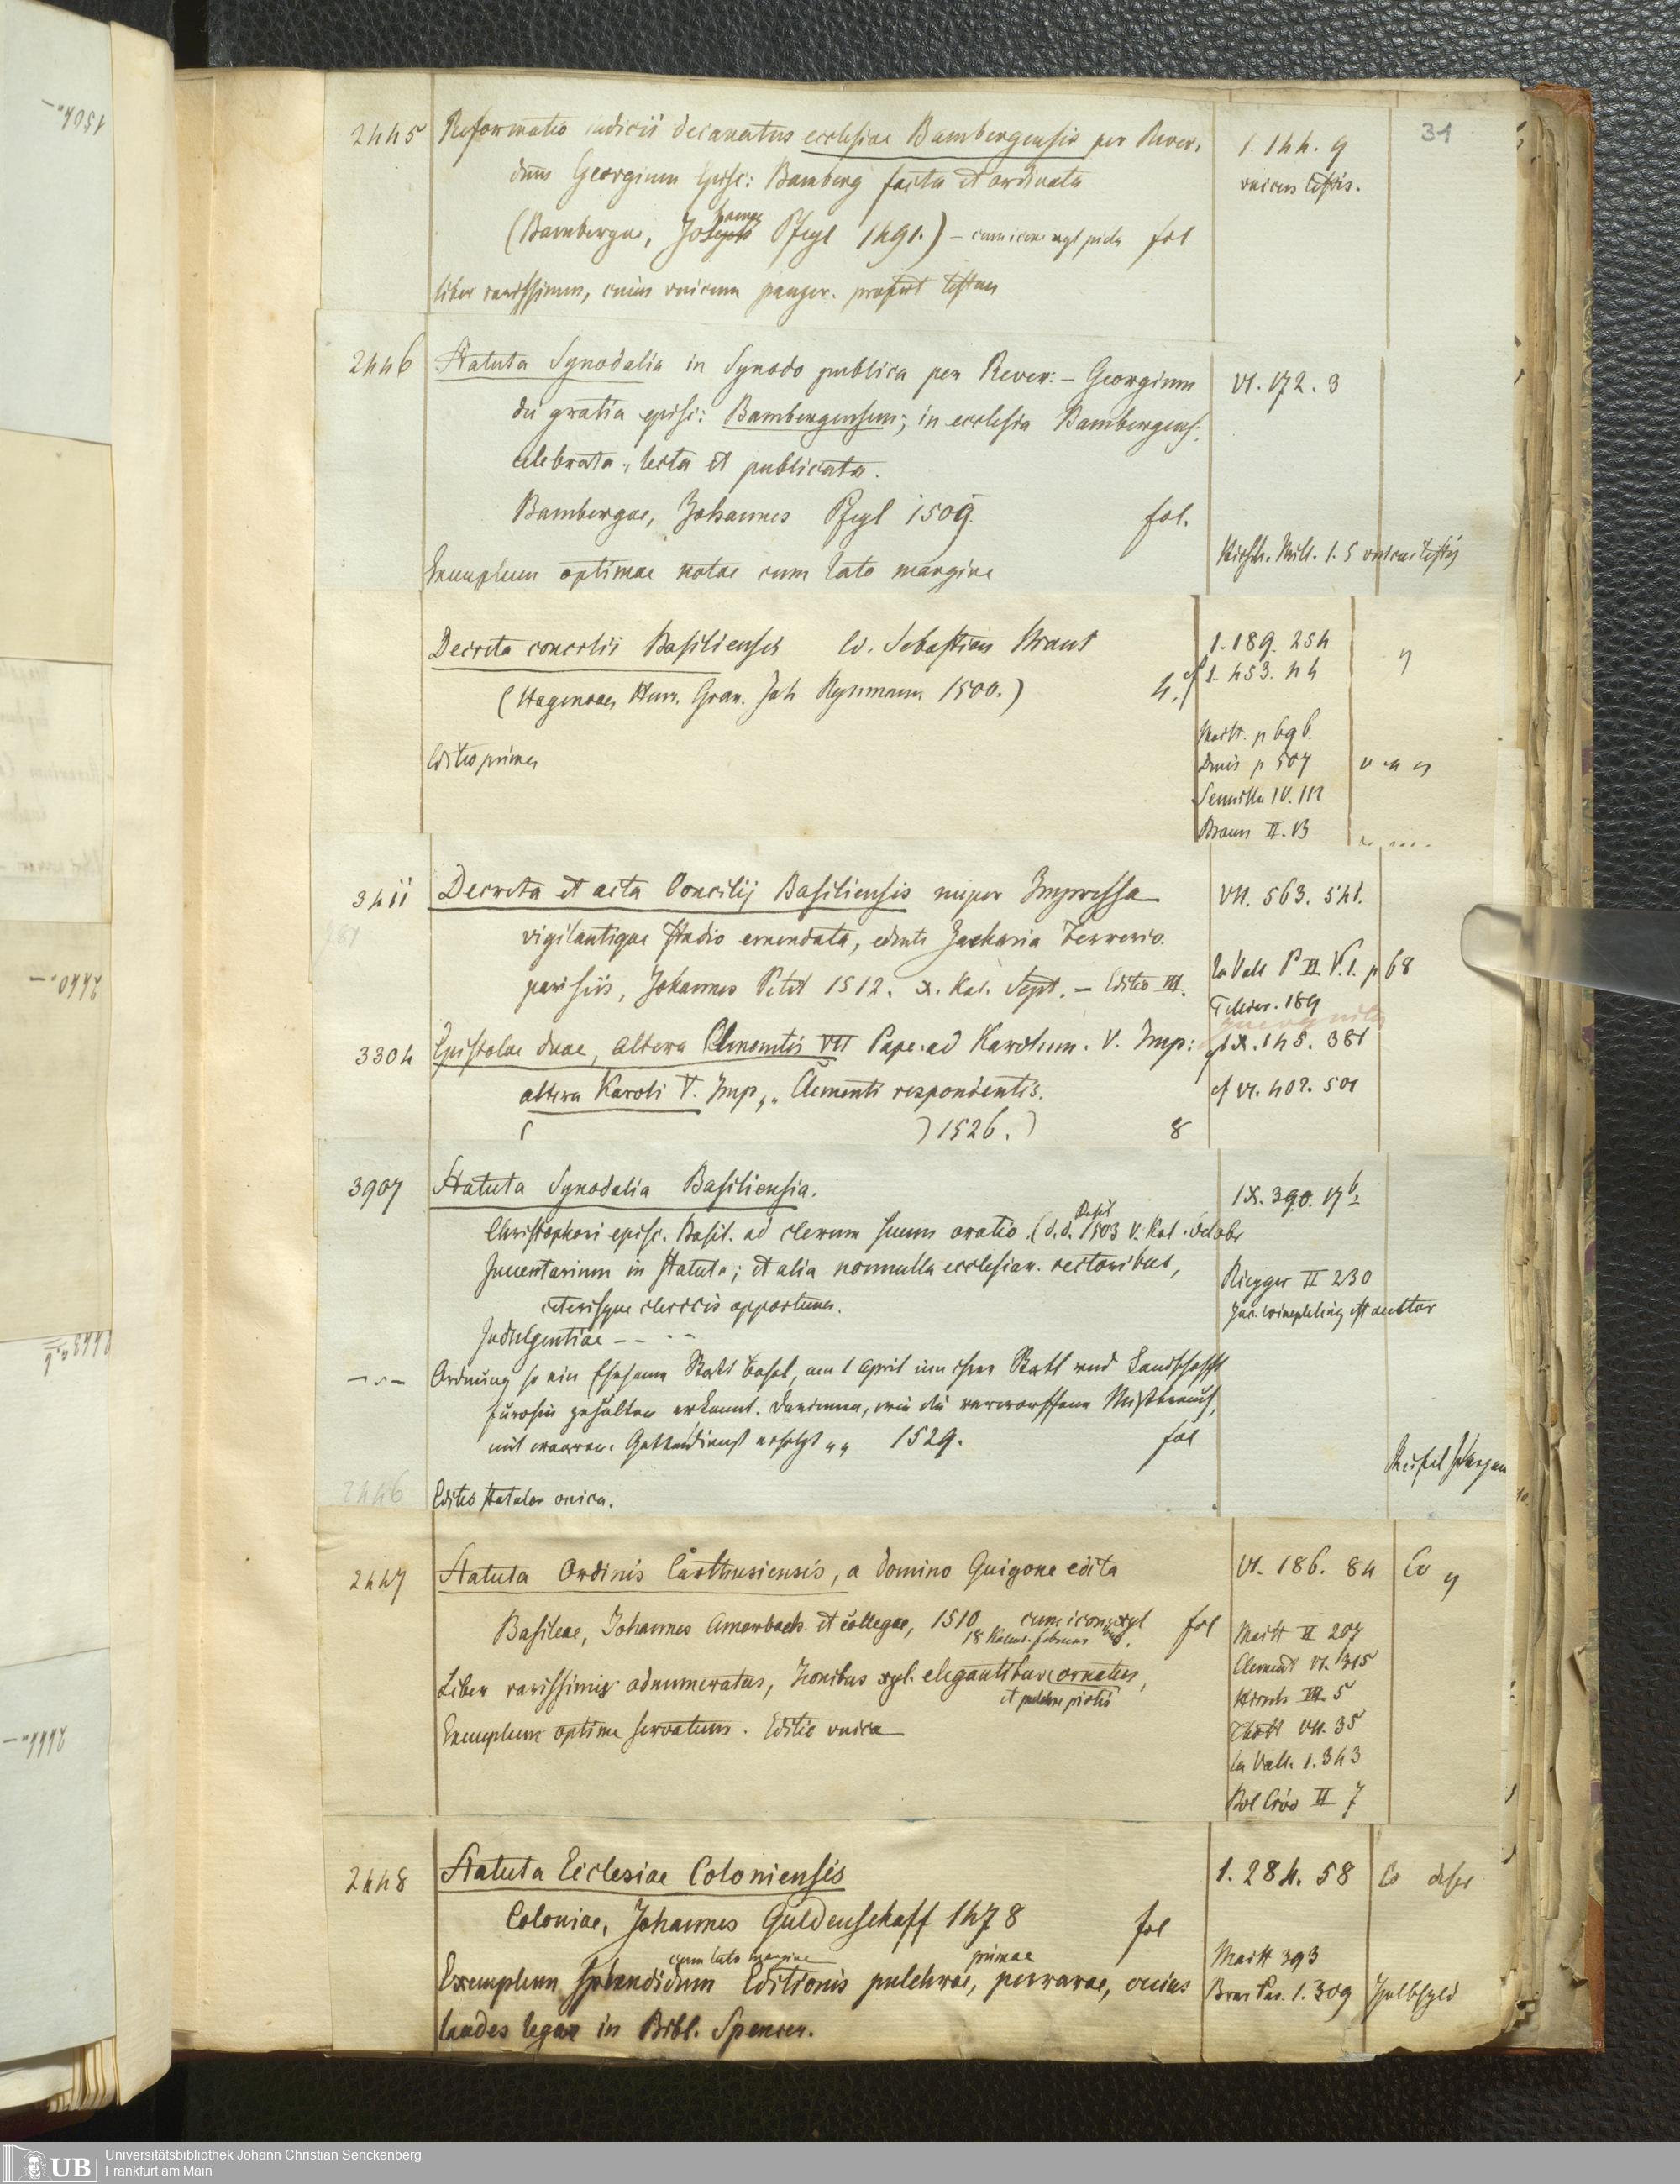 31
2445 Reformatio iudicii decanatus ecclesiae Bambergensis per Rever. 1. 144. 9
dum Georgium Episc: Bamberg facta et ordinata unicus testis.
(Bambergae, Pfeyl 1491.) – cum icone xyl picta fol
liber rarissimus, cuius unicum panzer. profert testem
2446 Statuta Synodalia in Synodo publica per Rever: – Georgium VI. 172. 3
dei gratia episc: Bambergensem; in ecclesia Bambergens:
celebrata, lecta et publicata.
Bambergae, Johannes Pfeyl 1509. fol.
Exemplum optimae notae cum lato margine Hirsch. Mill. 1. 5 unicus testis
Decreta concilii Basiliensis Ed. Sebastian Brant 1. 189. 254
(Hagenoae, Henr. Gran. Joh Rynmann 1500.) 4. cf 1. 453. 44
Maitt. p 696.
Editio princeps Denis p 507
IV. 112
Braun II. 13
3411 Decreta et acta Concilij Basiliensis nuper Impressa VII. 563. 541.
vigilantique studio emendata, edente Zacharia Ferrerio.
parisiis, Johannes Petit 1512. X. Kal. Sept. – Editio III. La Vall P II V. 1. p 68
189
3304 Epistolae duae, altera Clementis VII Pape ad Karolum. V. Imp: cf IX. 145. 381
altera Karoli V. Imp„ Clementi respondentis. cf VI. 402. 501
( ) 1526. ) 8
3907 Statuta Synodalia Basiliensia. IX. 390. 17b
Christophori episc. Basil. ad clerum suum oratio. (d. d. Basil 1503 V. Kal. Octobr
Inventarium in statuta; et alia nonnulla ecclesiar. rectoribus, Riegger II 230
ceterisque clericis opportuna. Jac. Wimpheling est auctor
Indulgentiae – – – –
– „ – Ordnung so ein Ersame Statt Basel, am 1 April inn ihrer Statt und Landschafft
fürohin zehalten erkannt. Darinnen, wie die verworffene Missbreuch,
mit waarem Gottesdienst ersetzt „„ 1529. fol
2446 Editio statutor unica.
2447 Statuta Ordinis Carthusiensis, a domino Guigone edita VI. 186. 84 Co
Basileae, Johannes Amorbach et collegae, 1510 cum icon. xyl fol Maitt II 207
18 Kalend. februar
Clement VI. 315
Liber rarissimis adnumeratus, Iconibus xyl. elegantibus ornatus, Hirsch III 5
et pulchre pictis
Exemplum optime servatum. Editio unica Thott VII. 35
La Vall. 1. 343
Bol Crov II 7
2448 Statuta Ecclesiae Coloniensis 1. 284. 58 Co
Coloniae, Johannes Guldenschaff 1478 fol
cum lato margine primae Maitt 393
Exemplum splendidum Editionis pulchrae, perrarae, cuius 1. 309
laudes legas in Bibl. Spencer.
UB Universitätsbibliothek Johann Christian Senckenberg
Frankfurt am Main